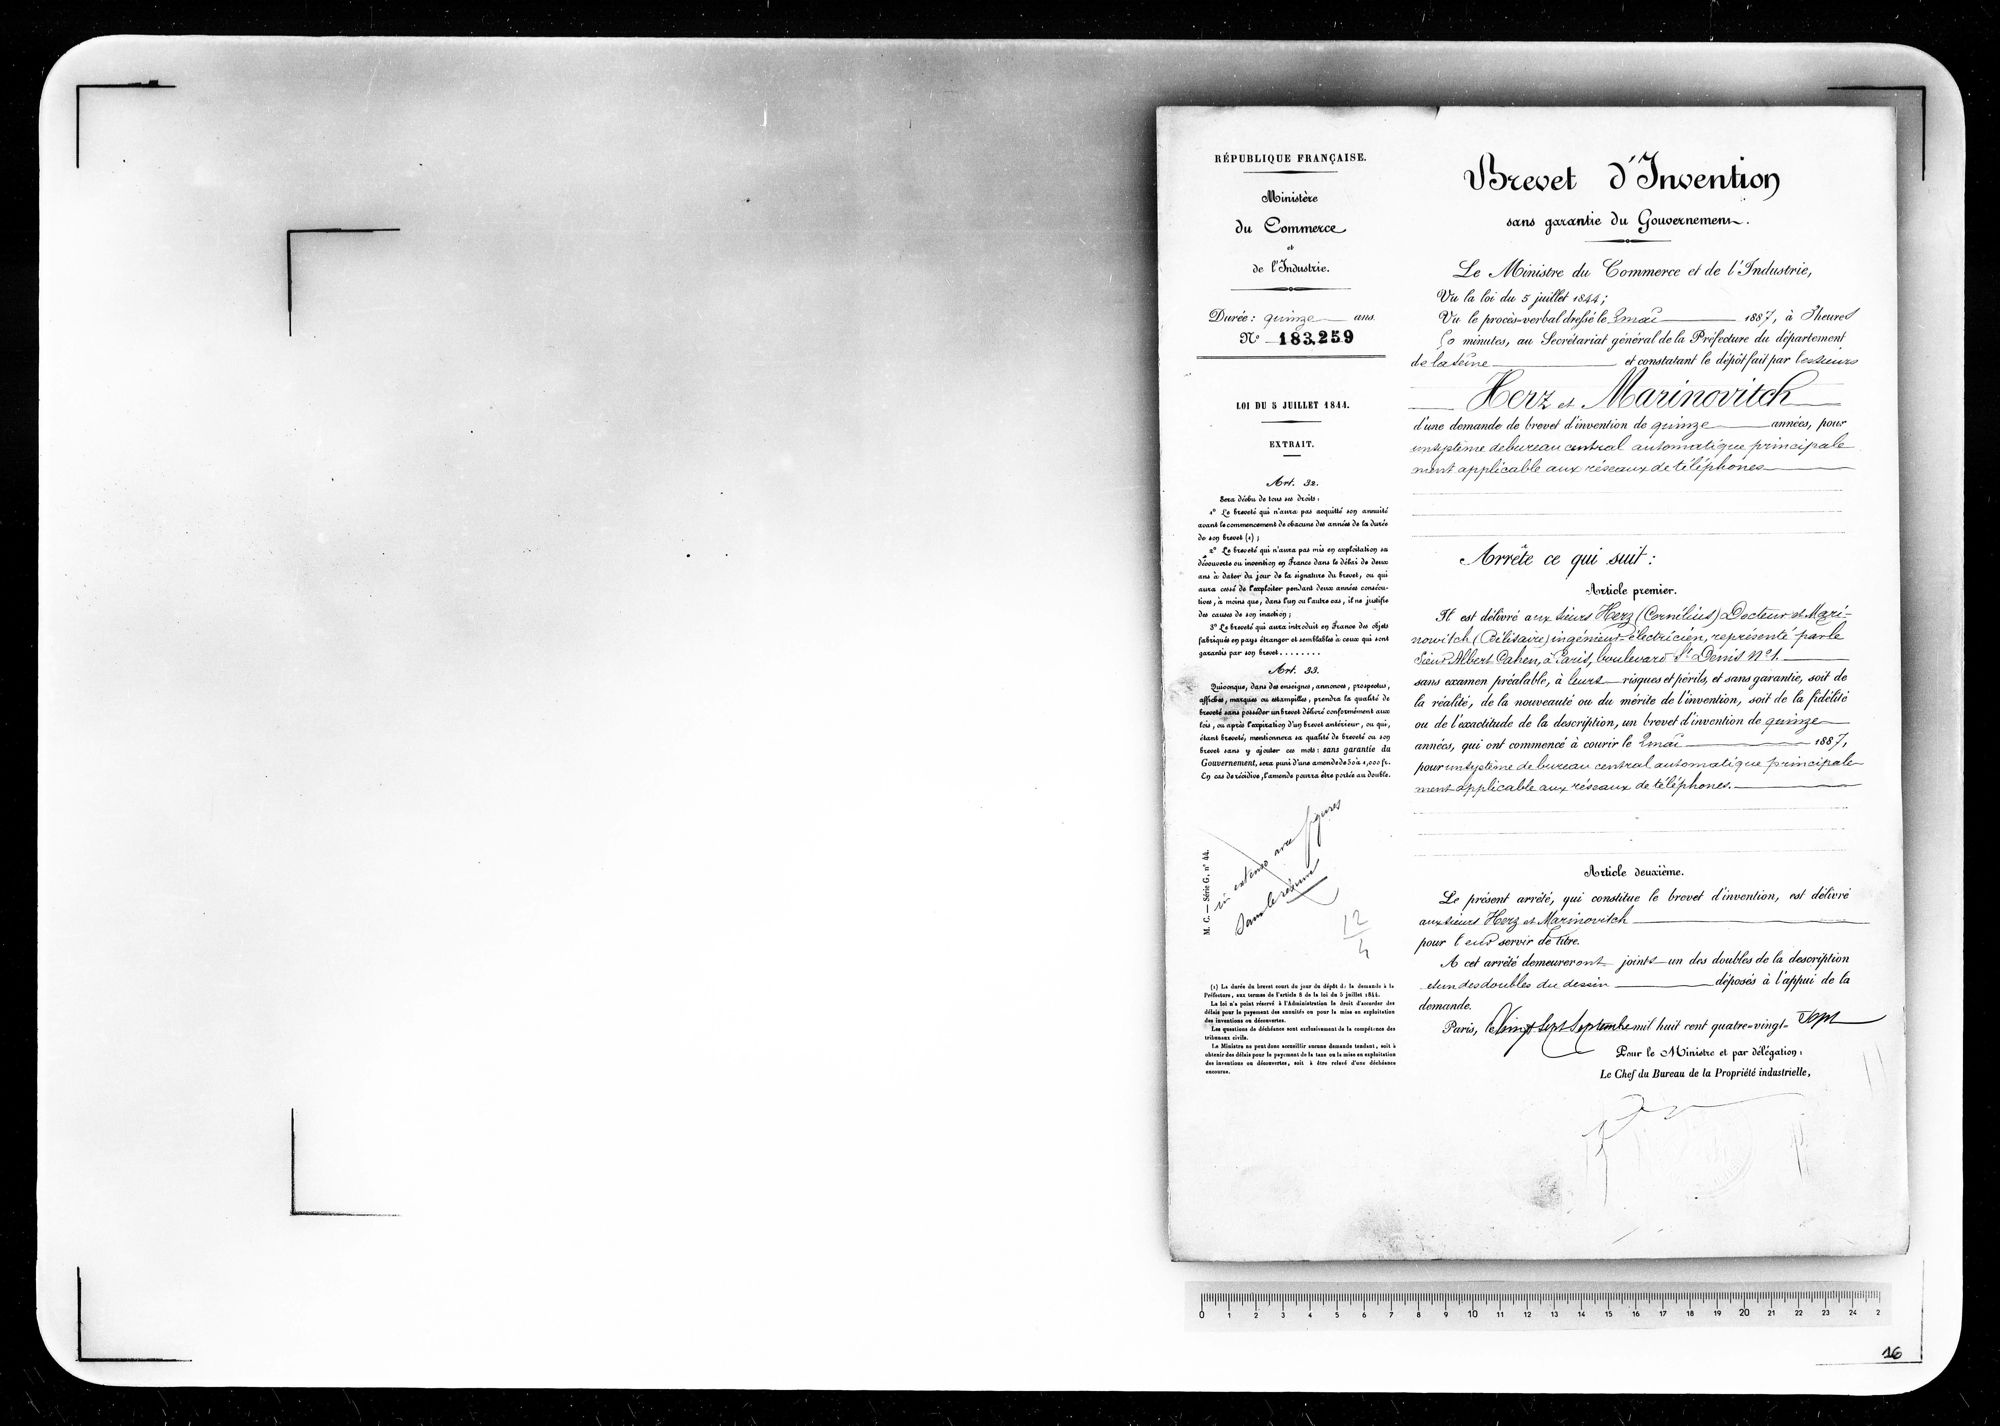 RÉPUBLIQUE FRANÇAISE.
Ministère
du Commerce
et
de l'Industrie.
Durée: quinze ans.
N° 183,259
LOI DU 5 JUILLET 1844.
EXTRAIT.
Art. 32.
Sera déchu de tous ses droits:
1° Le breveté qui n'aura pas acquitté son annuité
avant le commencement de chacune des années de la durée
de son brevet (1);
2° Le breveté qui n'aura pas mis en exploitation sa
découverte ou invention en France dans le délai de deux
ans à dater du jour de la signature du brevet, ou qui
aura cessé de l'exploiter pendant deux années consécu-
tives, à moins que, dans l'un ou l'autre cas, il ne justifie
des causes de son inaction;
3° Le breveté qui aura introduit en France des objets
fabriqués en pays étranger et semblables à ceux qui sont
garantis par son brevet........
Art. 33.
Quiconque, dans des enseignes, annonces, prospectus,
affiches, marques ou estampilles, prendra la qualité de
breveté sans posséder un brevet délivré conformément aux
lois, ou après l'expiration d'un brevet antérieur, ou qui,
étant breveté, mentionnera sa qualité de breveté ou son
brevet sans y ajouter ces mots: sans garantie du
Gouvernement, sera puni d'une amende de 50 à 1,000 fr.
En cas de récidive, l'amende pourra être portée au double.
in extenso avec figures
Sans le résumé
12
4
M. C. — Série G, n° 44.
(1) La durée du brevet court du jour du dépôt de la demande à la
Préfecture, aux termes de l'article 8 de la loi du 5 juillet 1844.
La loi n'a point réservé à l'Administration le droit d'accorder des
délais pour le payement des annuités ou pour la mise en exploitation
des inventions ou découvertes.
Les questions de déchéance sont exclusivement de la compétence des
tribunaux civils.
Le Ministre ne peut donc accueillir aucune demande tendant, soit à
obtenir des délais pour le payement de la taxe ou la mise en exploitation
des inventions ou découvertes, soit à être relevé d'une déchéance
encourue.
Brevet d'Invention
sans garantie du Gouvernement.
Le Ministre du Commerce et de l'Industrie,
Vu la loi du 5 juillet 1844;
Vu le procès-verbal dressé le 2 mai 1887, à 3 heures
50 minutes, au Secrétariat général de la Préfecture du département
de la Seine et constatant le dépôt fait par les sieurs
Herz et Marinovitch
d'une demande de brevet d'invention de quinze années, pour
un système de bureau central automatique principale
ment applicable aux réseaux de téléphones
Arrête ce qui suit:
Article premier.
Il est délivré aux sieurs Herz (Cornélius) Docteur et Mari-
nowitch (Bélisaire) ingénieur-électricien, représenté par le
Sieur Albert Cahen, à Paris, boulevard St. Denis N° 1.
sans examen préalable, à leurs risques et périls, et sans garantie, soit de
la réalité, de la nouveauté ou du mérite de l'invention, soit de la fidélité
ou de l'exactitude de la description, un brevet d'invention de quinze
années, qui ont commencé à courir le 2 mai 1887,
pour un système de bureau central automatique principale
ment applicable aux réseaux de téléphones.
Article deuxième.
Le présent arrêté, qui constitue le brevet d'invention, est délivré
aux sieurs Herz et Marinovitch
pour leur servir de titre.
A cet arrêté demeureront joints un des doubles de la description
et un des doubles du dessin déposés à l'appui de la
demande.
Paris, le vingt sept Septembre mil huit cent quatre-vingt-sept
Pour le Ministre et par délégation:
Le Chef du Bureau de la Propriété industrielle,
0 1 2 3 4 5 6 7 8 9 10 11 12 13 14 15 16 17 18 19 20 21 22 23 24 2
16